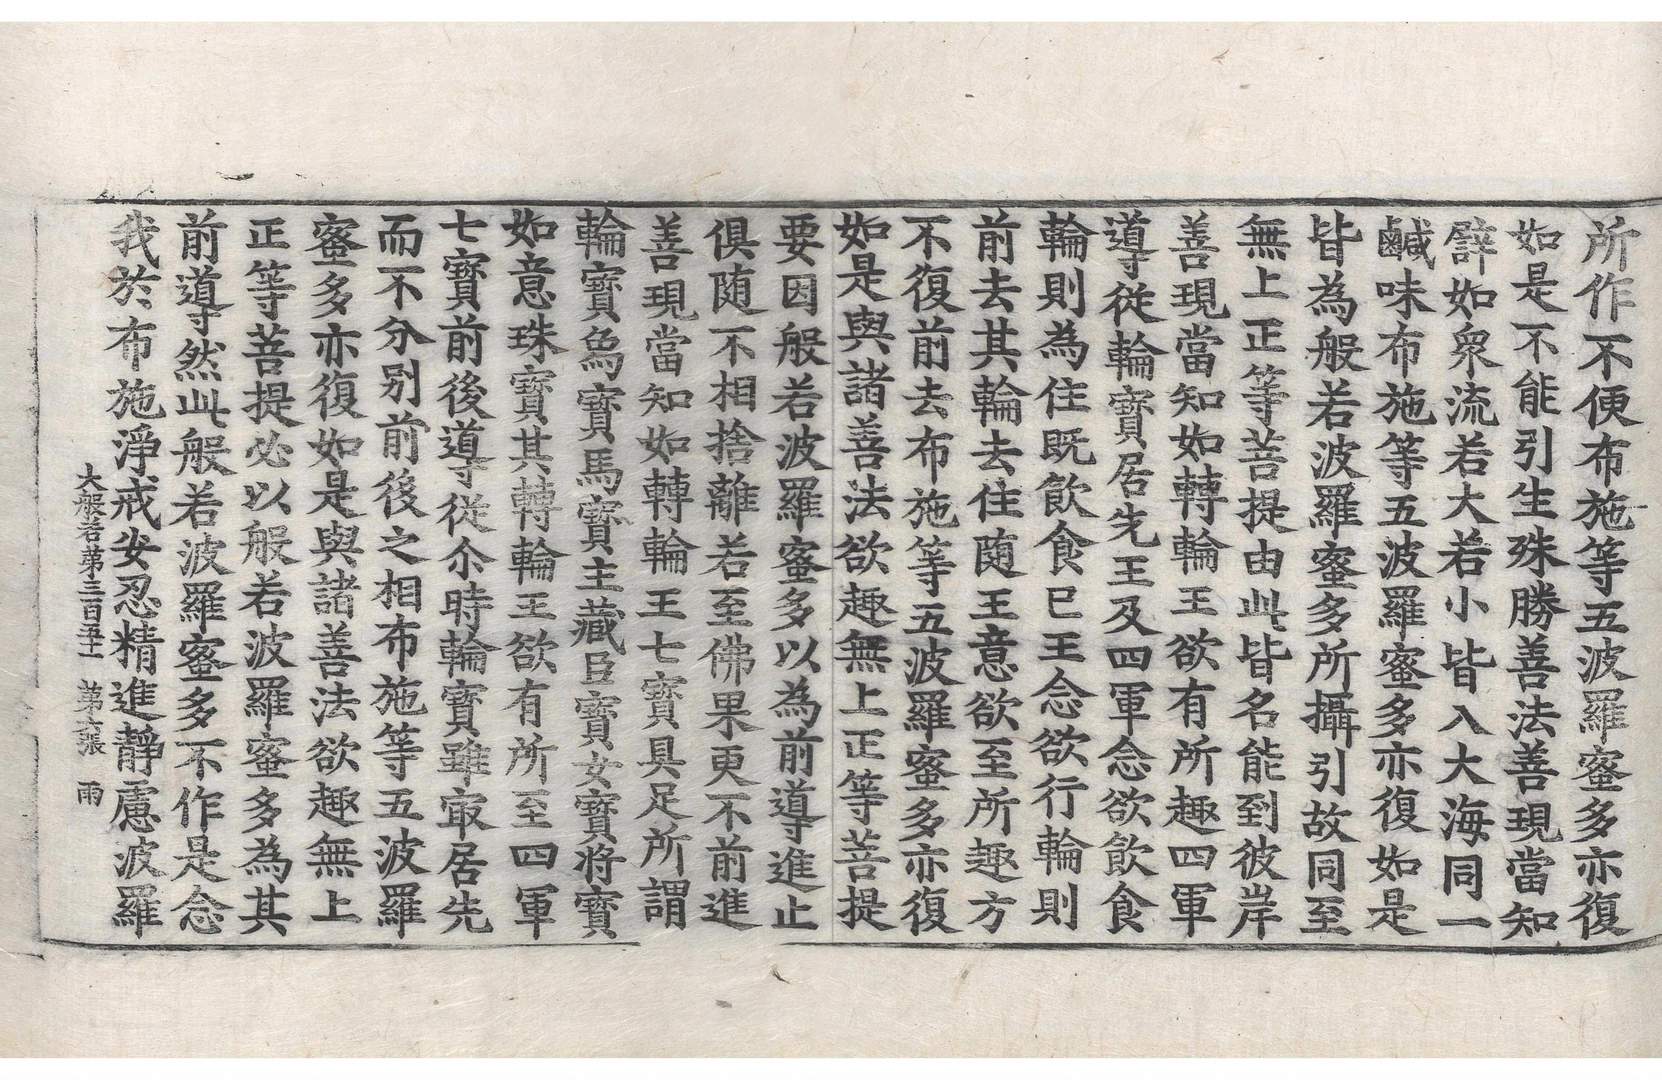 所作不便布施等五波羅蜜多亦復
如是不能引生殊勝善法善現當知
譬如衆流若大若小皆入大海同一
鹹味布施等五波羅蜜多亦復如是
皆為般若波羅蜜多所攝引故同至
無上正等菩提由此皆名能到彼岸
善現當知如轉輪王欲有所趣四軍
導從輪寶居先王及四軍念欲飲食
輪則為住既飲食已王念欲行輪則
前去其輪去住随王意欲至所趣方
不復前去布施等五波羅蜜多亦復
如是與諸善法欲趣無上正等菩提
要因般若波羅蜜多以為前導進止
俱随不相捨離若至佛果更不前進
善現當知如轉輪王七寶具足所謂
輪寶爲寶馬寶主藏臣寶女寶將寶
如意珠寶其轉輪王欲有所至四軍
七寶前後導從尒時輪寶雖㝡居先
而不分别前後之相布施等五波羅
蜜多亦復如是與諸善法欲趣無上
正等菩提必以般若波羅蜜多為其
前導然此般若波羅蜜多不作是念
我於布施淨戒安忍精進靜慮波羅
大般若第三百五十一 第六張 雨